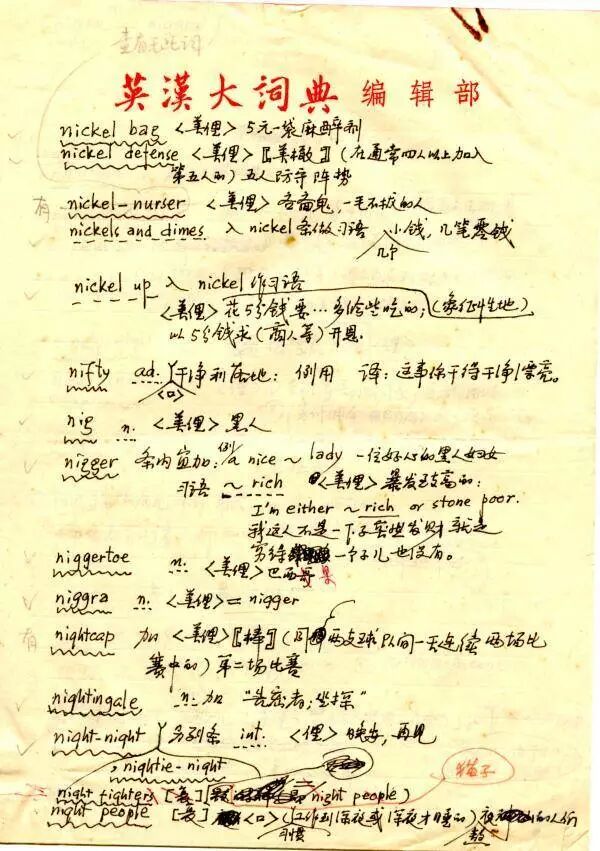 查有无此词
英漢大词典 编辑部
nickel bag <美俚> 5元一袋麻醉剂
nickel defense <美俚>〖美橄〗(在通常四人以上加入
第五人的) 五人防守阵势
有 nickel-nurser <美俚> 吝啬鬼,一毛不拔的人
nickels and dimes 入 nickel 条做习语 小钱,几笔零钱
nickel up 入 nickel 作习语
<美俚> 花5分钱要…多给些吃的; (象征性地)
以5分钱求(商人等)开恩.
nifty ad. <口> 干净利落地: 例用 译: 这事你干得干净漂亮。
nig n. <美俚> 黑人
nigger 条内宜加: 例 a nice ~ lady 一位好心的黑人妇女
习语 ~ rich <美俚> 暴发致富的:
I'm either ~ rich or stone poor.
我这人不是一下子突然发财就是
穷得一个子儿也没有。
niggertoe n. <美俚> 巴西果
niggra n. <美俚> = nigger
有 nightcap 加 <美俚>〖棒〗(同两支球队间一天连续两场比
赛中的) 第二场比赛
nightingale n. 加 "告密者;坐探"
night-night 另列条 int. <俚> 晚安,再见
, nightie-night
猫子
night fighters [美] night people)
night people [美] <口> (工作到深夜或深夜才睡的) 夜的人们
习惯